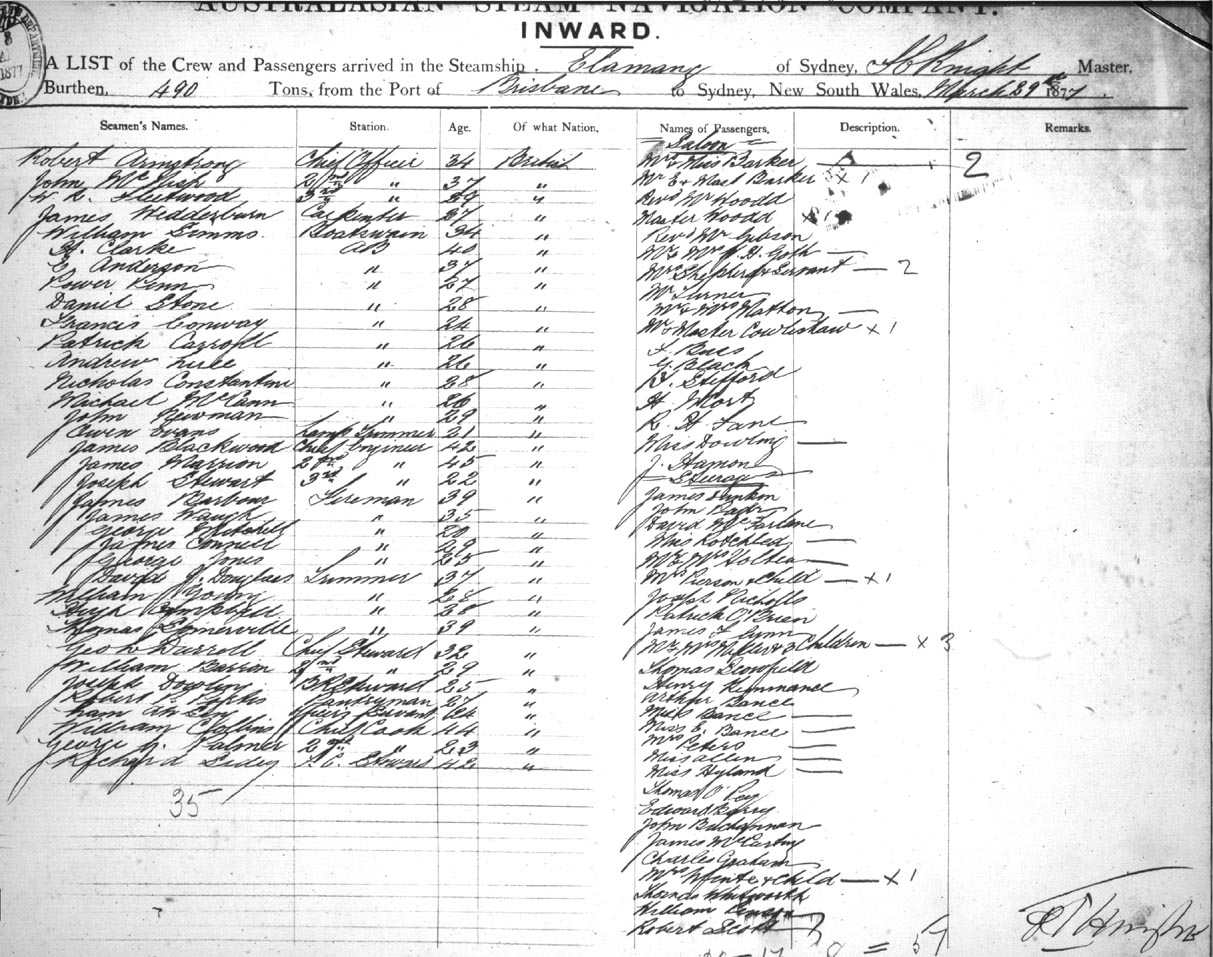 AUSTRALASIAN STEAM NAVIGATION COMPANY.
INWARD.
1877
A LIST of the Crew and Passengers arrived in the Steamship Elamang of Sydney, Knight Master,
Burthen, 490 Tons, from the Port of Brisbane to Sydney, New South Wales, March 29th 1877
Seamen's Names. Station. Age. Of what Nation, Names of Passengers, Description. Remarks.
Saloon
Robert Armstrong Chief Officer 34 British
John McNish 2nd " 37 "
Fleetwood 3rd " 29 "
James Wedderburn Carpenter 37 "
William Semms Boatswain 34 "
H. Clarke AB 40 "
C. Anderson " 37 "
Power Penn " 27 "
Daniel Stone " 28 "
Francis Conway " 24 "
Patrick Carroll " 26 "
Andrew " 26 "
Nicholas Constantine " 28 "
Michael McCann " 26 "
John Newman " 29 "
Owen Evans Lamp Trimmer 21 "
James Blackwood Chief Engineer 42 "
James Marrion 2nd " 45 "
Joseph Stewart 3rd " 22 "
James Barbour Fireman 39 "
James Waugh " 35 "
George Mitchell " 20 "
James Connell " 29 "
George Jones " 25 "
David J. Douglass Trimmer 37 "
William Young " 28 "
Hugh " 38 "
Thomas Somerville " 39 "
Geo W Darroll Chief Steward 32 "
William Barron 2nd " 29 "
Joseph Dowling Steward 25 "
Robert Pantryman 21 "
Servant "
William Collins Chief Cook 44 "
George Palmer 2nd " 23 "
Richard Sidey F. C. Steward 42 "
35
Mr & Miss Barker — 2
Mr E & Mast Barker x 1
Revd Mr Woodd
Master Woodd x 1
Revd Mr Gibson
Mr & Mrs Goth —
Mrs Shepherd & Servant — 2
Mr Turner
Mr & Mrs Matton —
Mr & Master Cowlishaw x 1
G. Black
Stifford
H. Mort
R. H. Lane
Miss Dowling —
J. Hamon
Steerage
James Dunkin
John
David McFarlane
Miss Rotchled —
Mr & Mrs Holten —
Mrs Pierson & Child — x 1
Joseph Nicholls
Patrick O'Brien
James Flynn
Mr & Mrs & 3 Children — x 3
Thomas Blowfield
Henry Kemmance
Arthur Bance
Bance —
Miss E. Bance —
Mrs Peters —
Miss Allen —
Miss Hyland —
Thomas
Edward Berry
John Buchannan
James McCarthy
Charles Graham
Mrs White & Child — x 1
Thomas Whitworth
William
Robert Scott
8 = 57
Knight